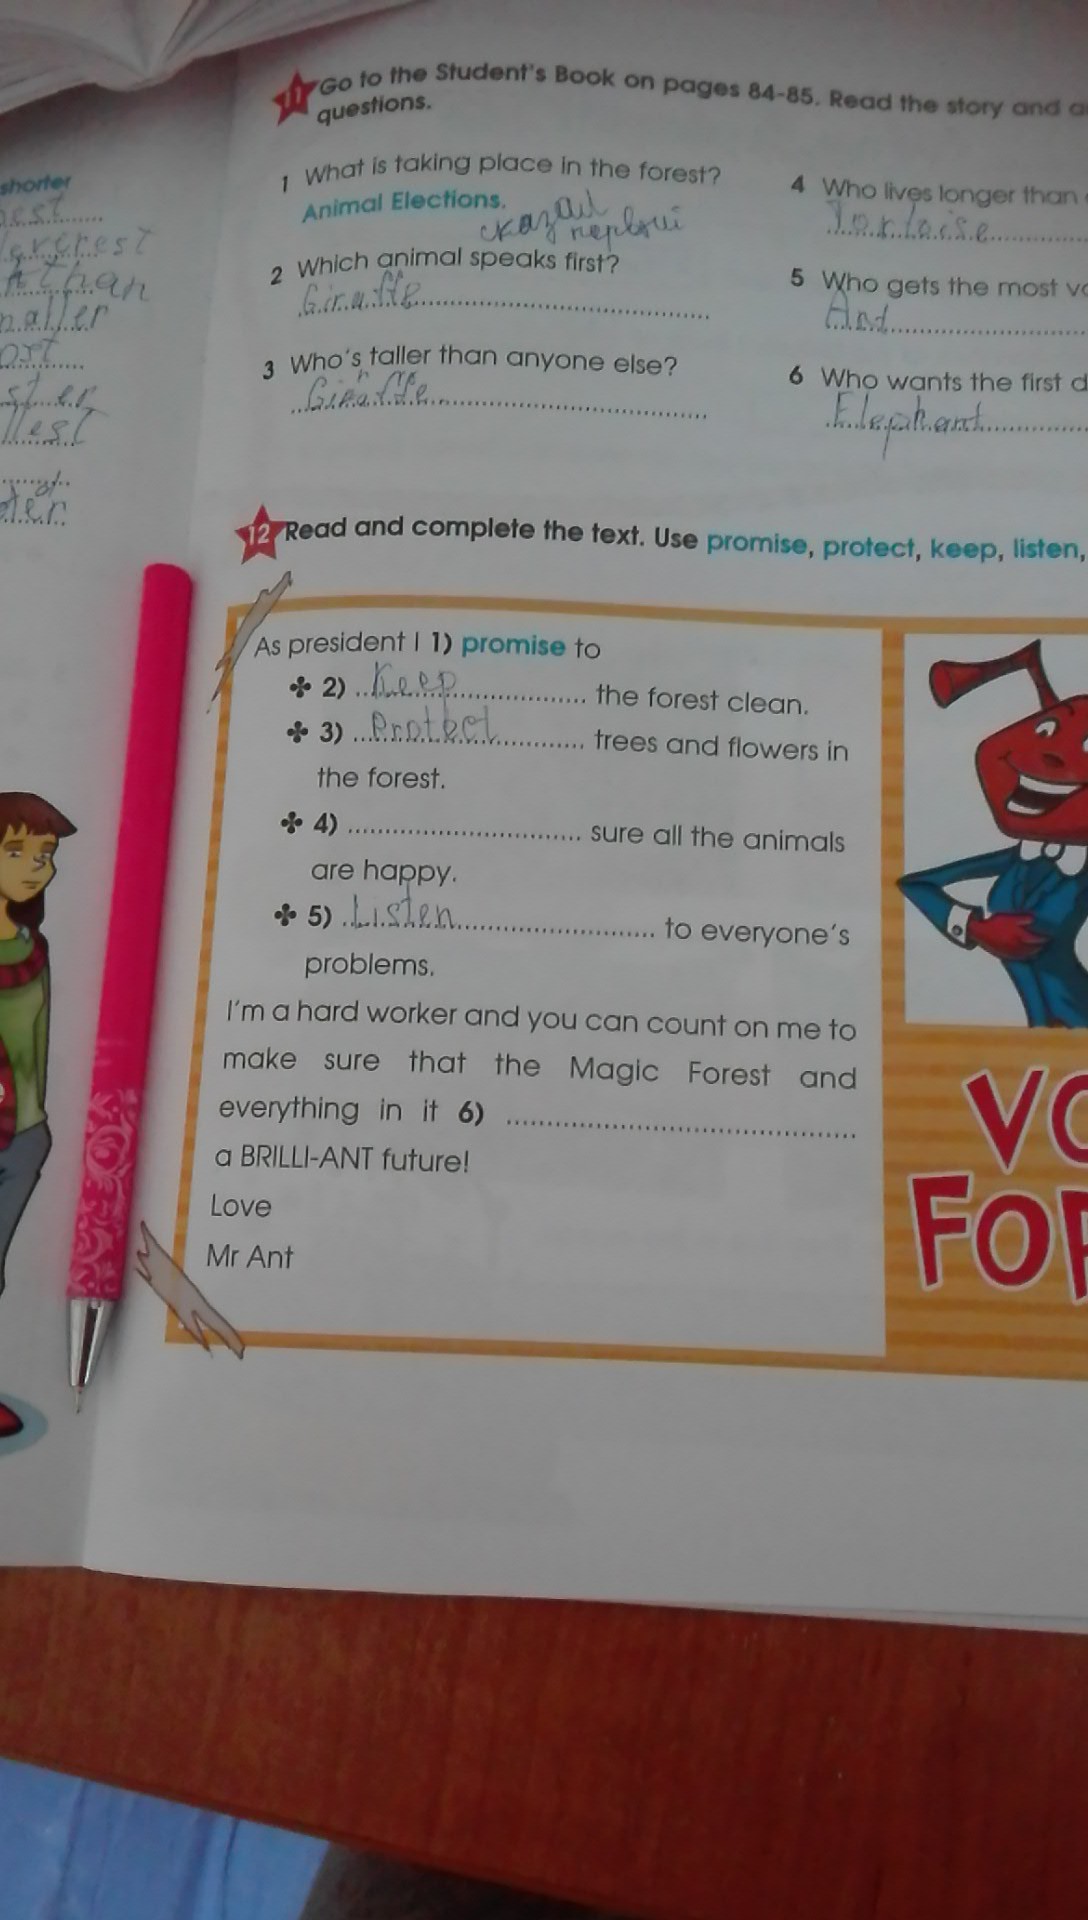 11 Go to the Student's Book on pages 84-85. Read the story and a
questions.
1 What is taking place in the forest?
Animal Elections.
сказал
первый
2 Which animal speaks first?
Giraffe
3 Who's taller than anyone else?
Giraffe
4 Who lives longer than
Tortoise
5 Who gets the most vo
6 Who wants the first d
Elephant
shorter
est
than
maller
ort
ster
llest
of
ter
12 Read and complete the text. Use promise, protect, keep, listen,
As president I 1) promise to
2) Keep the forest clean.
3) Protect trees and flowers in
the forest.
4) sure all the animals
are happy.
5) Listen to everyone's
problems.
I'm a hard worker and you can count on me to
make sure that the Magic Forest and
everything in it 6)
a BRILLI-ANT future!
Love
Mr Ant
VO
FOR